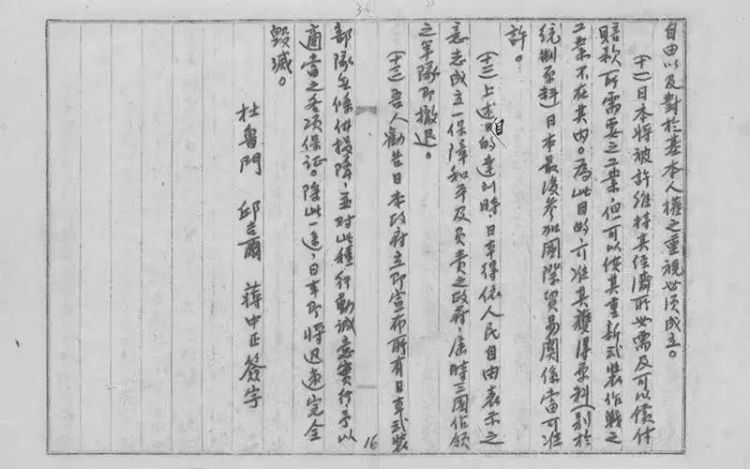 自由以及對於基本人權之重視必須成立。
(十一)日本將被許維持其經濟所必需及可以償付
賠款所需要之工業,但可以使其重新武裝作戰之
工業不在其內。為此目的,可准其獲得原料(別於
統制原料)日本最後參加國際貿易關係當可准
許。
(十二)上述目的達到時,日本得依人民自由表示之
意志成立一保障和平及負責之政府,屆時三國佔領
之軍隊即撤退。
(十三)吾人勸告日本政府立即宣布所有日本武裝
部隊無條件投降,並對此種行動誠意實行予以
適當之各項保證。除此一途,日本即將迅速完全
毀滅。
杜魯門 邱吉爾 蔣中正簽字
16